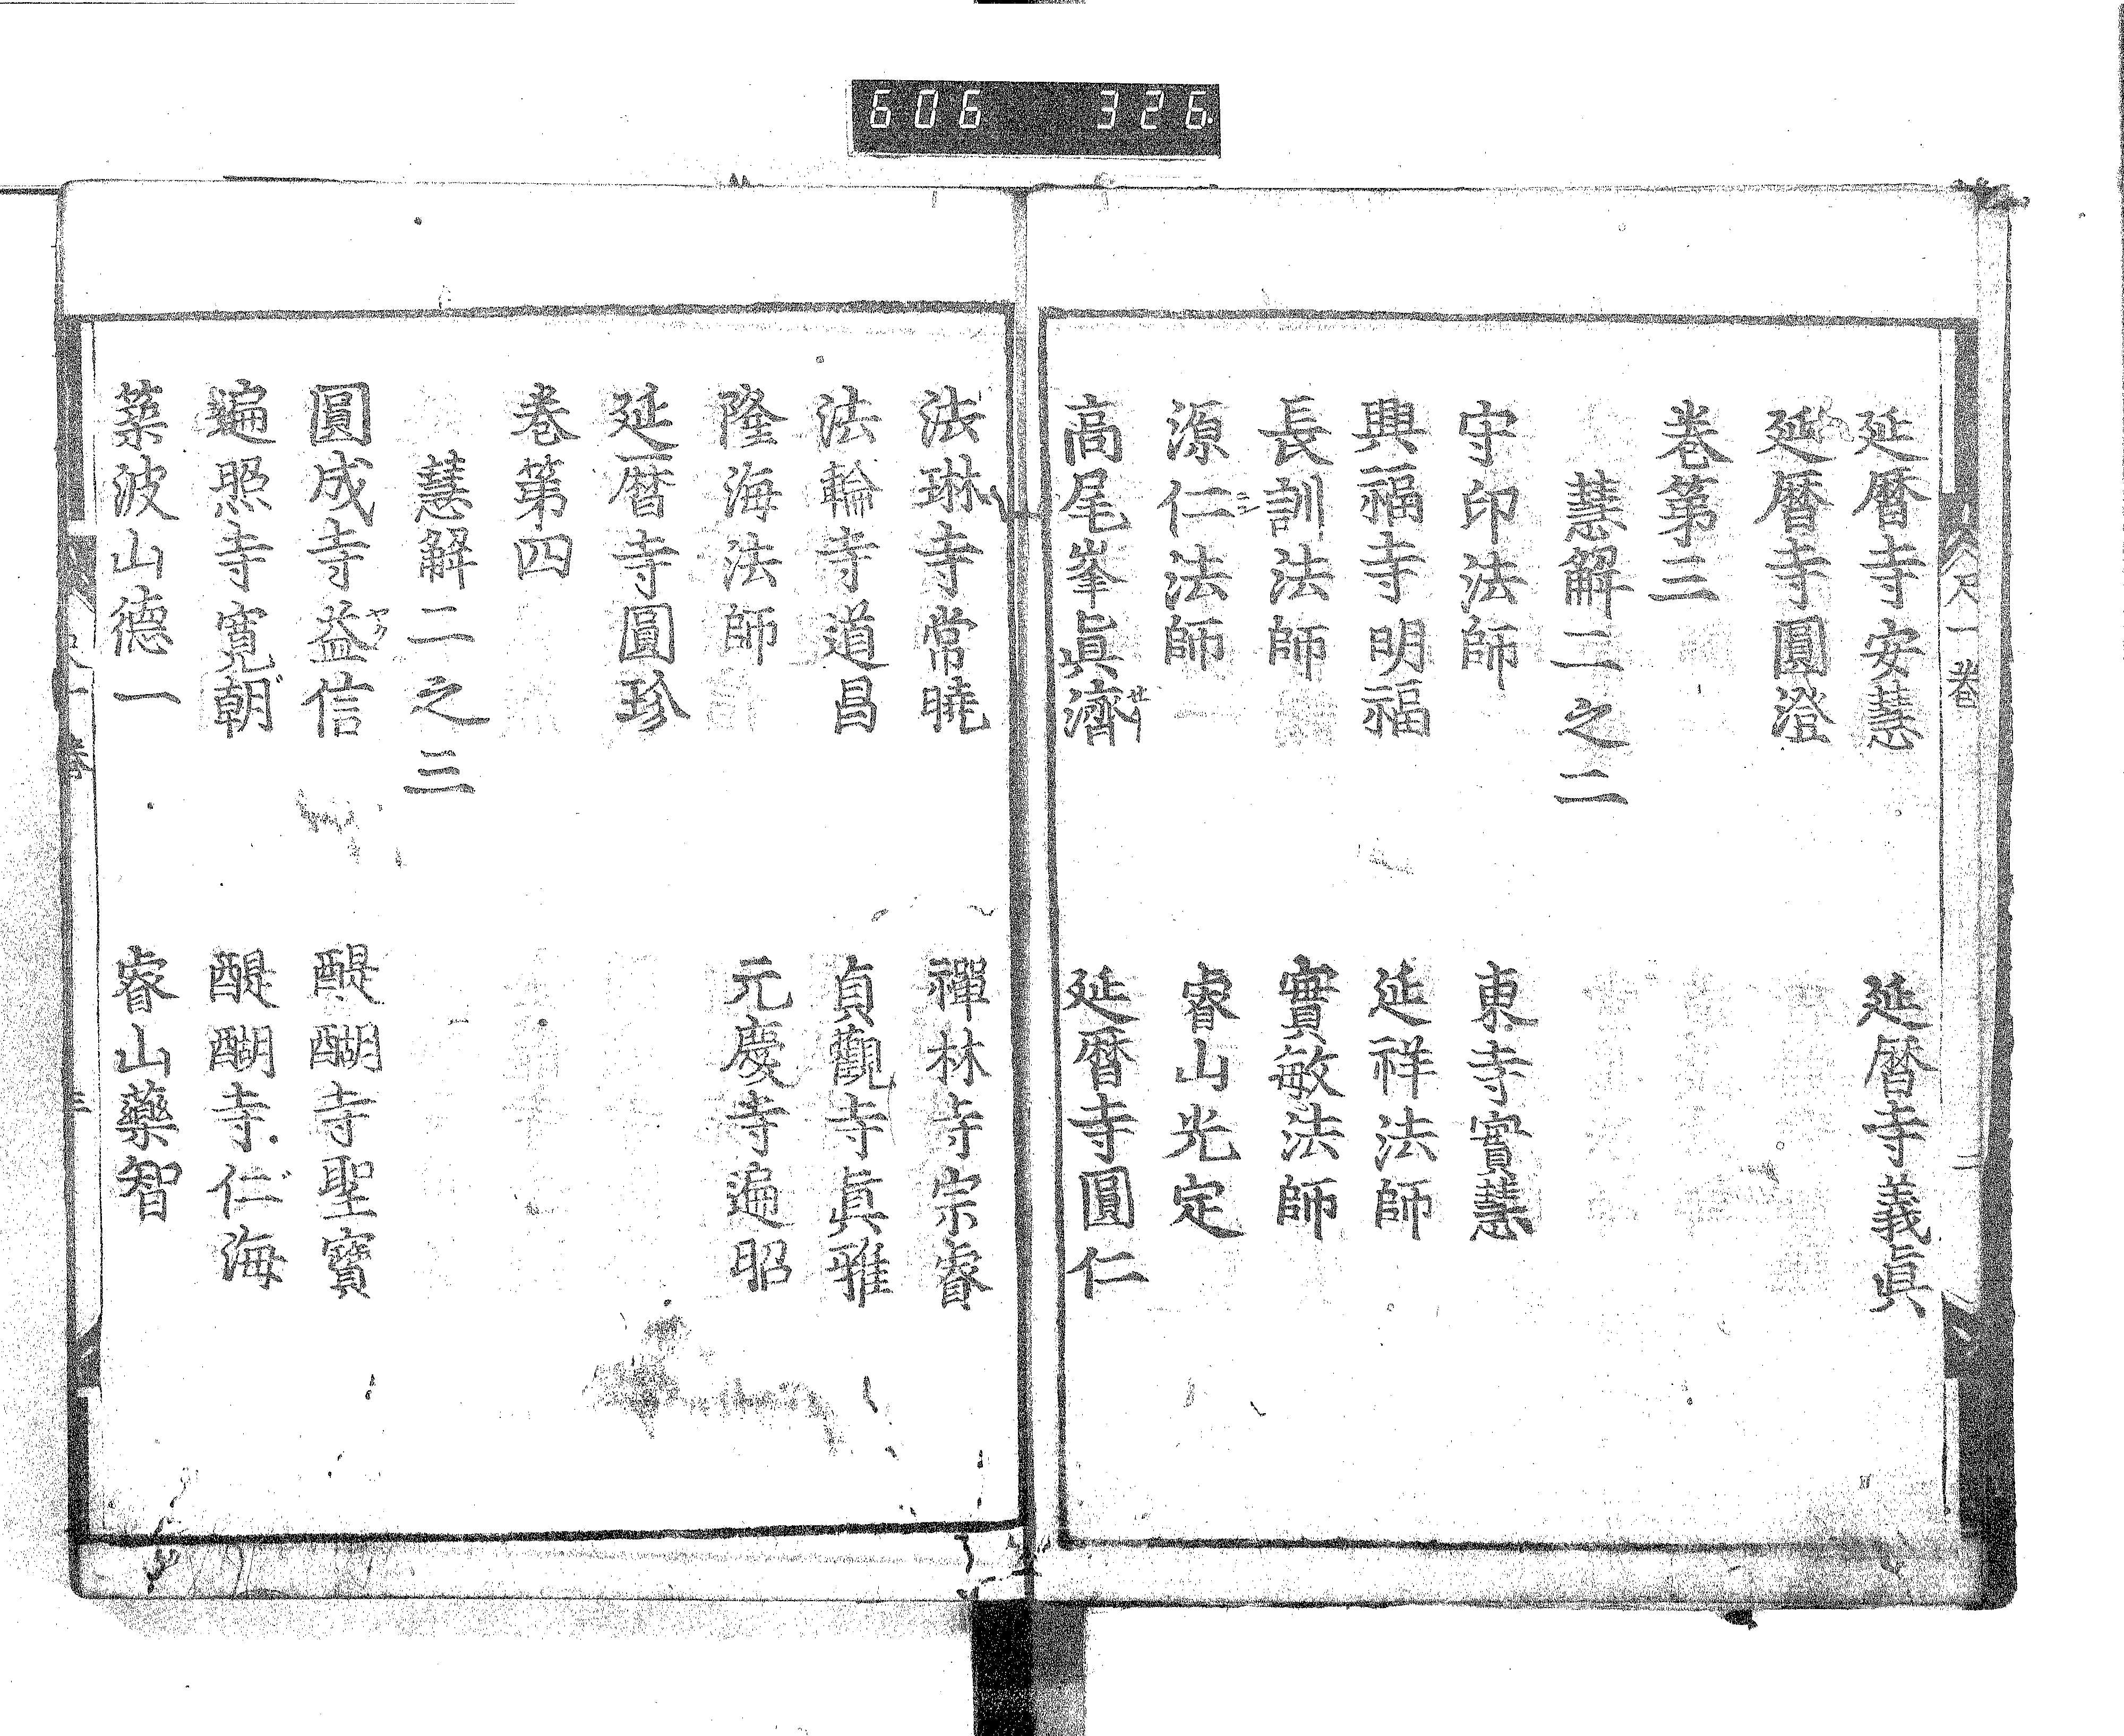 606 326
延暦寺安慧 延暦寺義眞
延暦寺圓澄
卷第三
慧解二之二
守印法師 東寺實慧
興福寺明福 延祥法師
長訓法師 實敏法師
源仁法師 睿山光定
高尾峯眞濟 延暦寺圓仁
法琳寺常曉 禪林寺宗睿
法輪寺道昌 貞觀寺眞雅
隆海法師 元慶寺遍昭
延暦寺圓珍
卷第四
慧解二之三
圓成寺益信 醍醐寺聖寶
遍照寺寛朝 醍醐寺仁海
築波山德一 睿山藥智